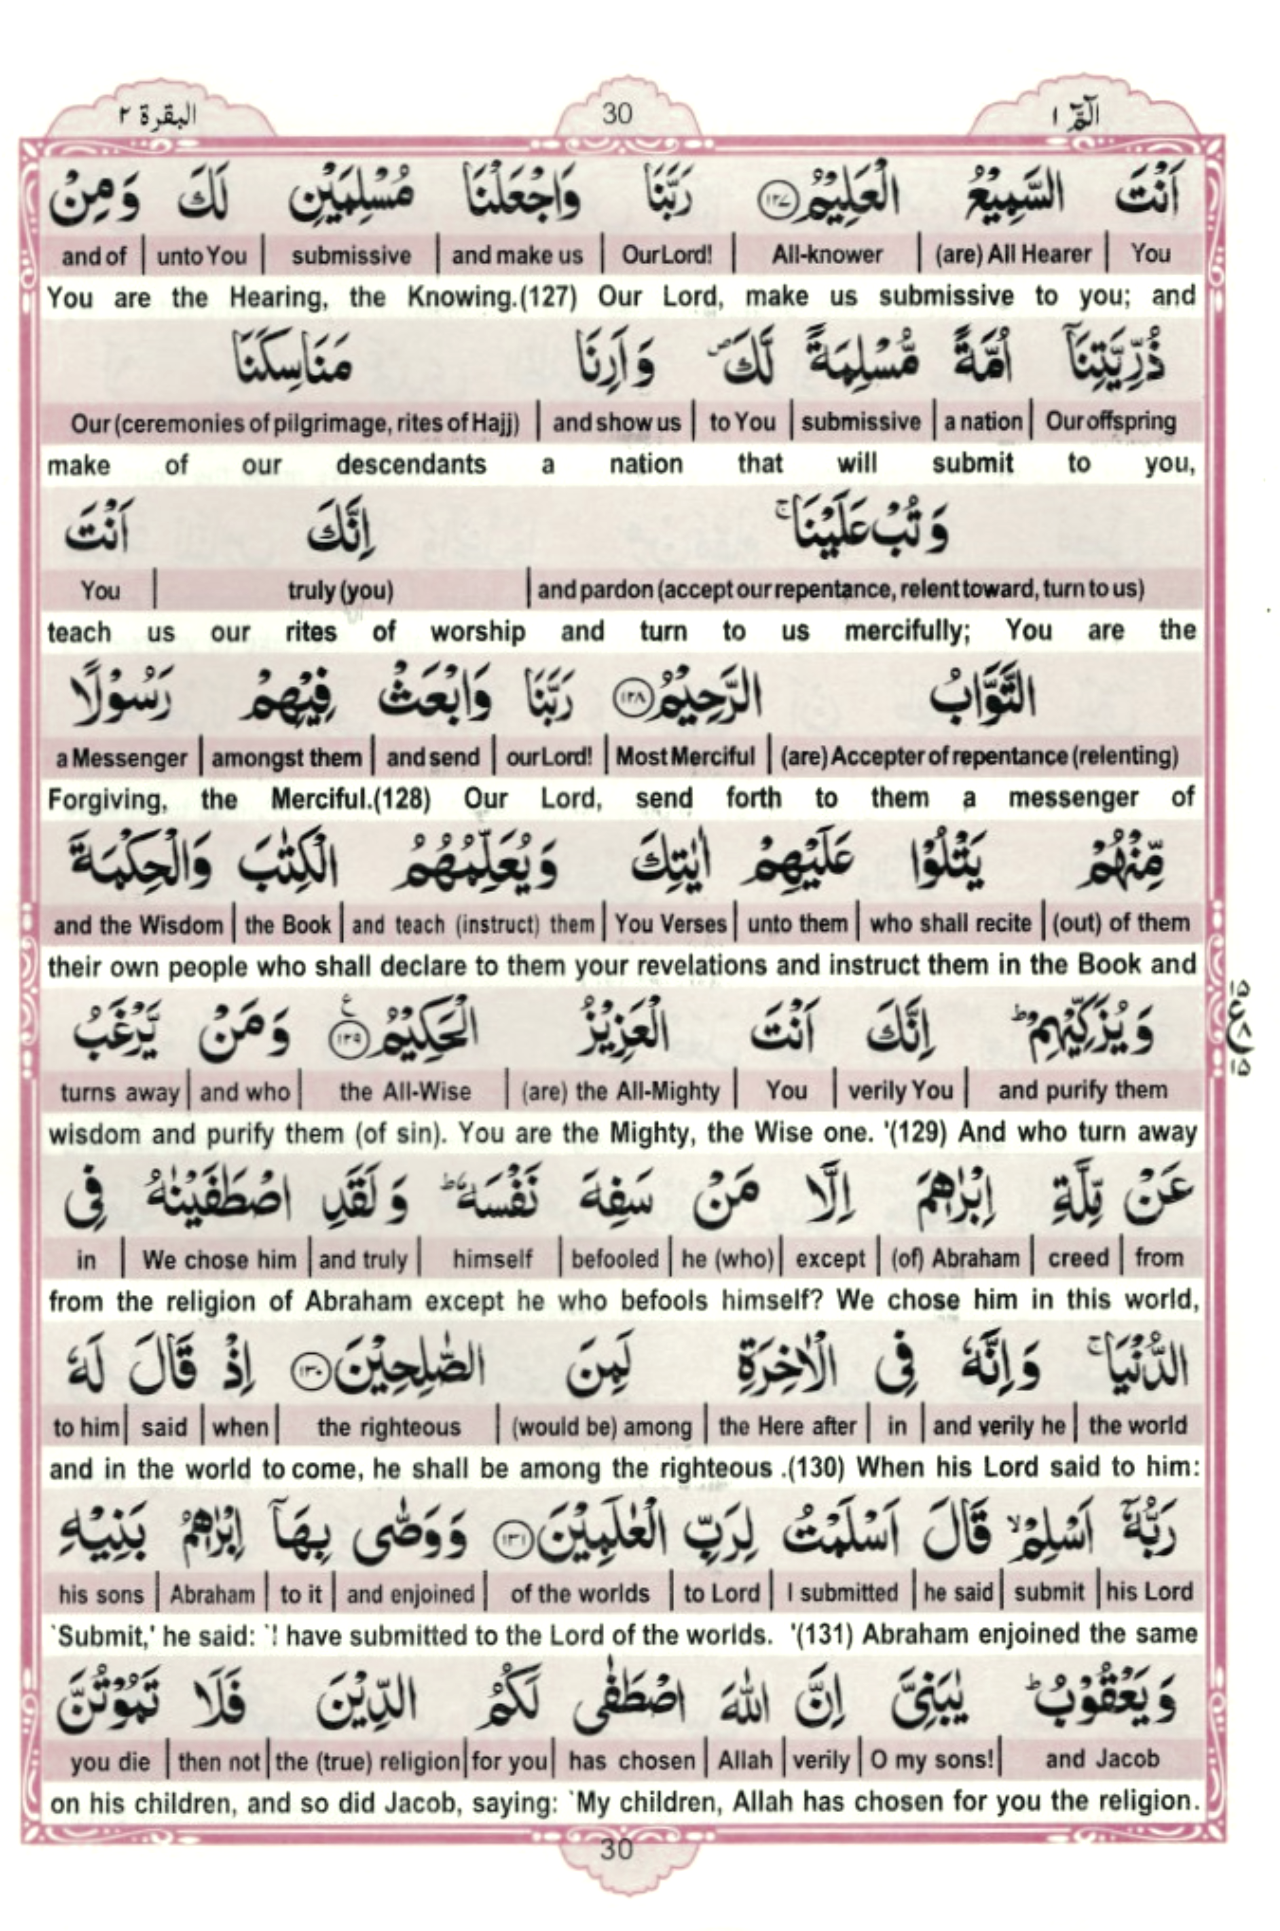 الٓمّٓ ١
30
البقرة ٢
اَنْتَ السَّمِيْعُ الْعَلِيْمُ ﴿١٢٧﴾ رَبَّنَا وَاجْعَلْنَا مُسْلِمَيْنِ لَكَ وَمِنْ
and of | unto You | submissive | and make us | Our Lord! | All-knower | (are) All Hearer | You
You are the Hearing, the Knowing.(127) Our Lord, make us submissive to you; and
ذُرِّيَّتِنَآ اُمَّةً مُّسْلِمَةً لَّكَ ۪ وَاَرِنَا مَنَاسِكَنَا
Our (ceremonies of pilgrimage, rites of Hajj) | and show us | to You | submissive | a nation | Our offspring
make of our descendants a nation that will submit to you,
وَتُبْ عَلَيْنَا ۚ اِنَّكَ اَنْتَ
You | truly (you) | and pardon (accept our repentance, relent toward, turn to us)
teach us our rites of worship and turn to us mercifully; You are the
التَّوَّابُ الرَّحِيْمُ ﴿١٢٨﴾ رَبَّنَا وَابْعَثْ فِيْهِمْ رَسُوْلًا
a Messenger | amongst them | and send | our Lord! | Most Merciful | (are) Accepter of repentance (relenting)
Forgiving, the Merciful.(128) Our Lord, send forth to them a messenger of
مِّنْهُمْ يَتْلُوْا عَلَيْهِمْ اٰيٰتِكَ وَيُعَلِّمُهُمُ الْكِتٰبَ وَالْحِكْمَةَ
and the Wisdom | the Book | and teach (instruct) them | You Verses | unto them | who shall recite | (out) of them
their own people who shall declare to them your revelations and instruct them in the Book and
وَيُزَكِّيْهِمْ ؕ اِنَّكَ اَنْتَ الْعَزِيْزُ الْحَكِيْمُ ﴿١٢٩﴾ ع وَمَنْ يَّرْغَبُ
turns away | and who | the All-Wise | (are) the All-Mighty | You | verily You | and purify them
wisdom and purify them (of sin). You are the Mighty, the Wise one. '(129) And who turn away
عَنْ مِّلَّةِ اِبْرٰهٖمَ اِلَّا مَنْ سَفِهَ نَفْسَهٗ ؕ وَلَقَدِ اصْطَفَيْنٰهُ فِى
in | We chose him | and truly | himself | befooled | he (who) | except | (of) Abraham | creed | from
from the religion of Abraham except he who befools himself? We chose him in this world,
الدُّنْيَا ۚ وَاِنَّهٗ فِى الْاٰخِرَةِ لَمِنَ الصّٰلِحِيْنَ ﴿١٣٠﴾ اِذْ قَالَ لَهٗ
to him | said | when | the righteous | (would be) among | the Here after | in | and verily he | the world
and in the world to come, he shall be among the righteous .(130) When his Lord said to him:
رَبُّهٗٓ اَسْلِمْ ۙ قَالَ اَسْلَمْتُ لِرَبِّ الْعٰلَمِيْنَ ﴿١٣١﴾ وَوَصّٰى بِهَآ اِبْرٰهٖمُ بَنِيْهِ
his sons | Abraham | to it | and enjoined | of the worlds | to Lord | I submitted | he said | submit | his Lord
`Submit,' he said: `I have submitted to the Lord of the worlds. '(131) Abraham enjoined the same
وَيَعْقُوْبُ ؕ يٰبَنِىَّ اِنَّ اللّٰهَ اصْطَفٰى لَكُمُ الدِّيْنَ فَلَا تَمُوْتُنَّ
you die | then not | the (true) religion | for you | has chosen | Allah | verily | O my sons! | and Jacob
on his children, and so did Jacob, saying: `My children, Allah has chosen for you the religion.
30
١٥
ع ٨
١٥